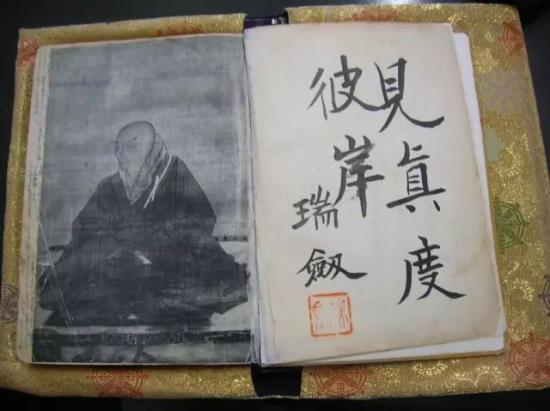 見眞度
彼岸
瑞劔